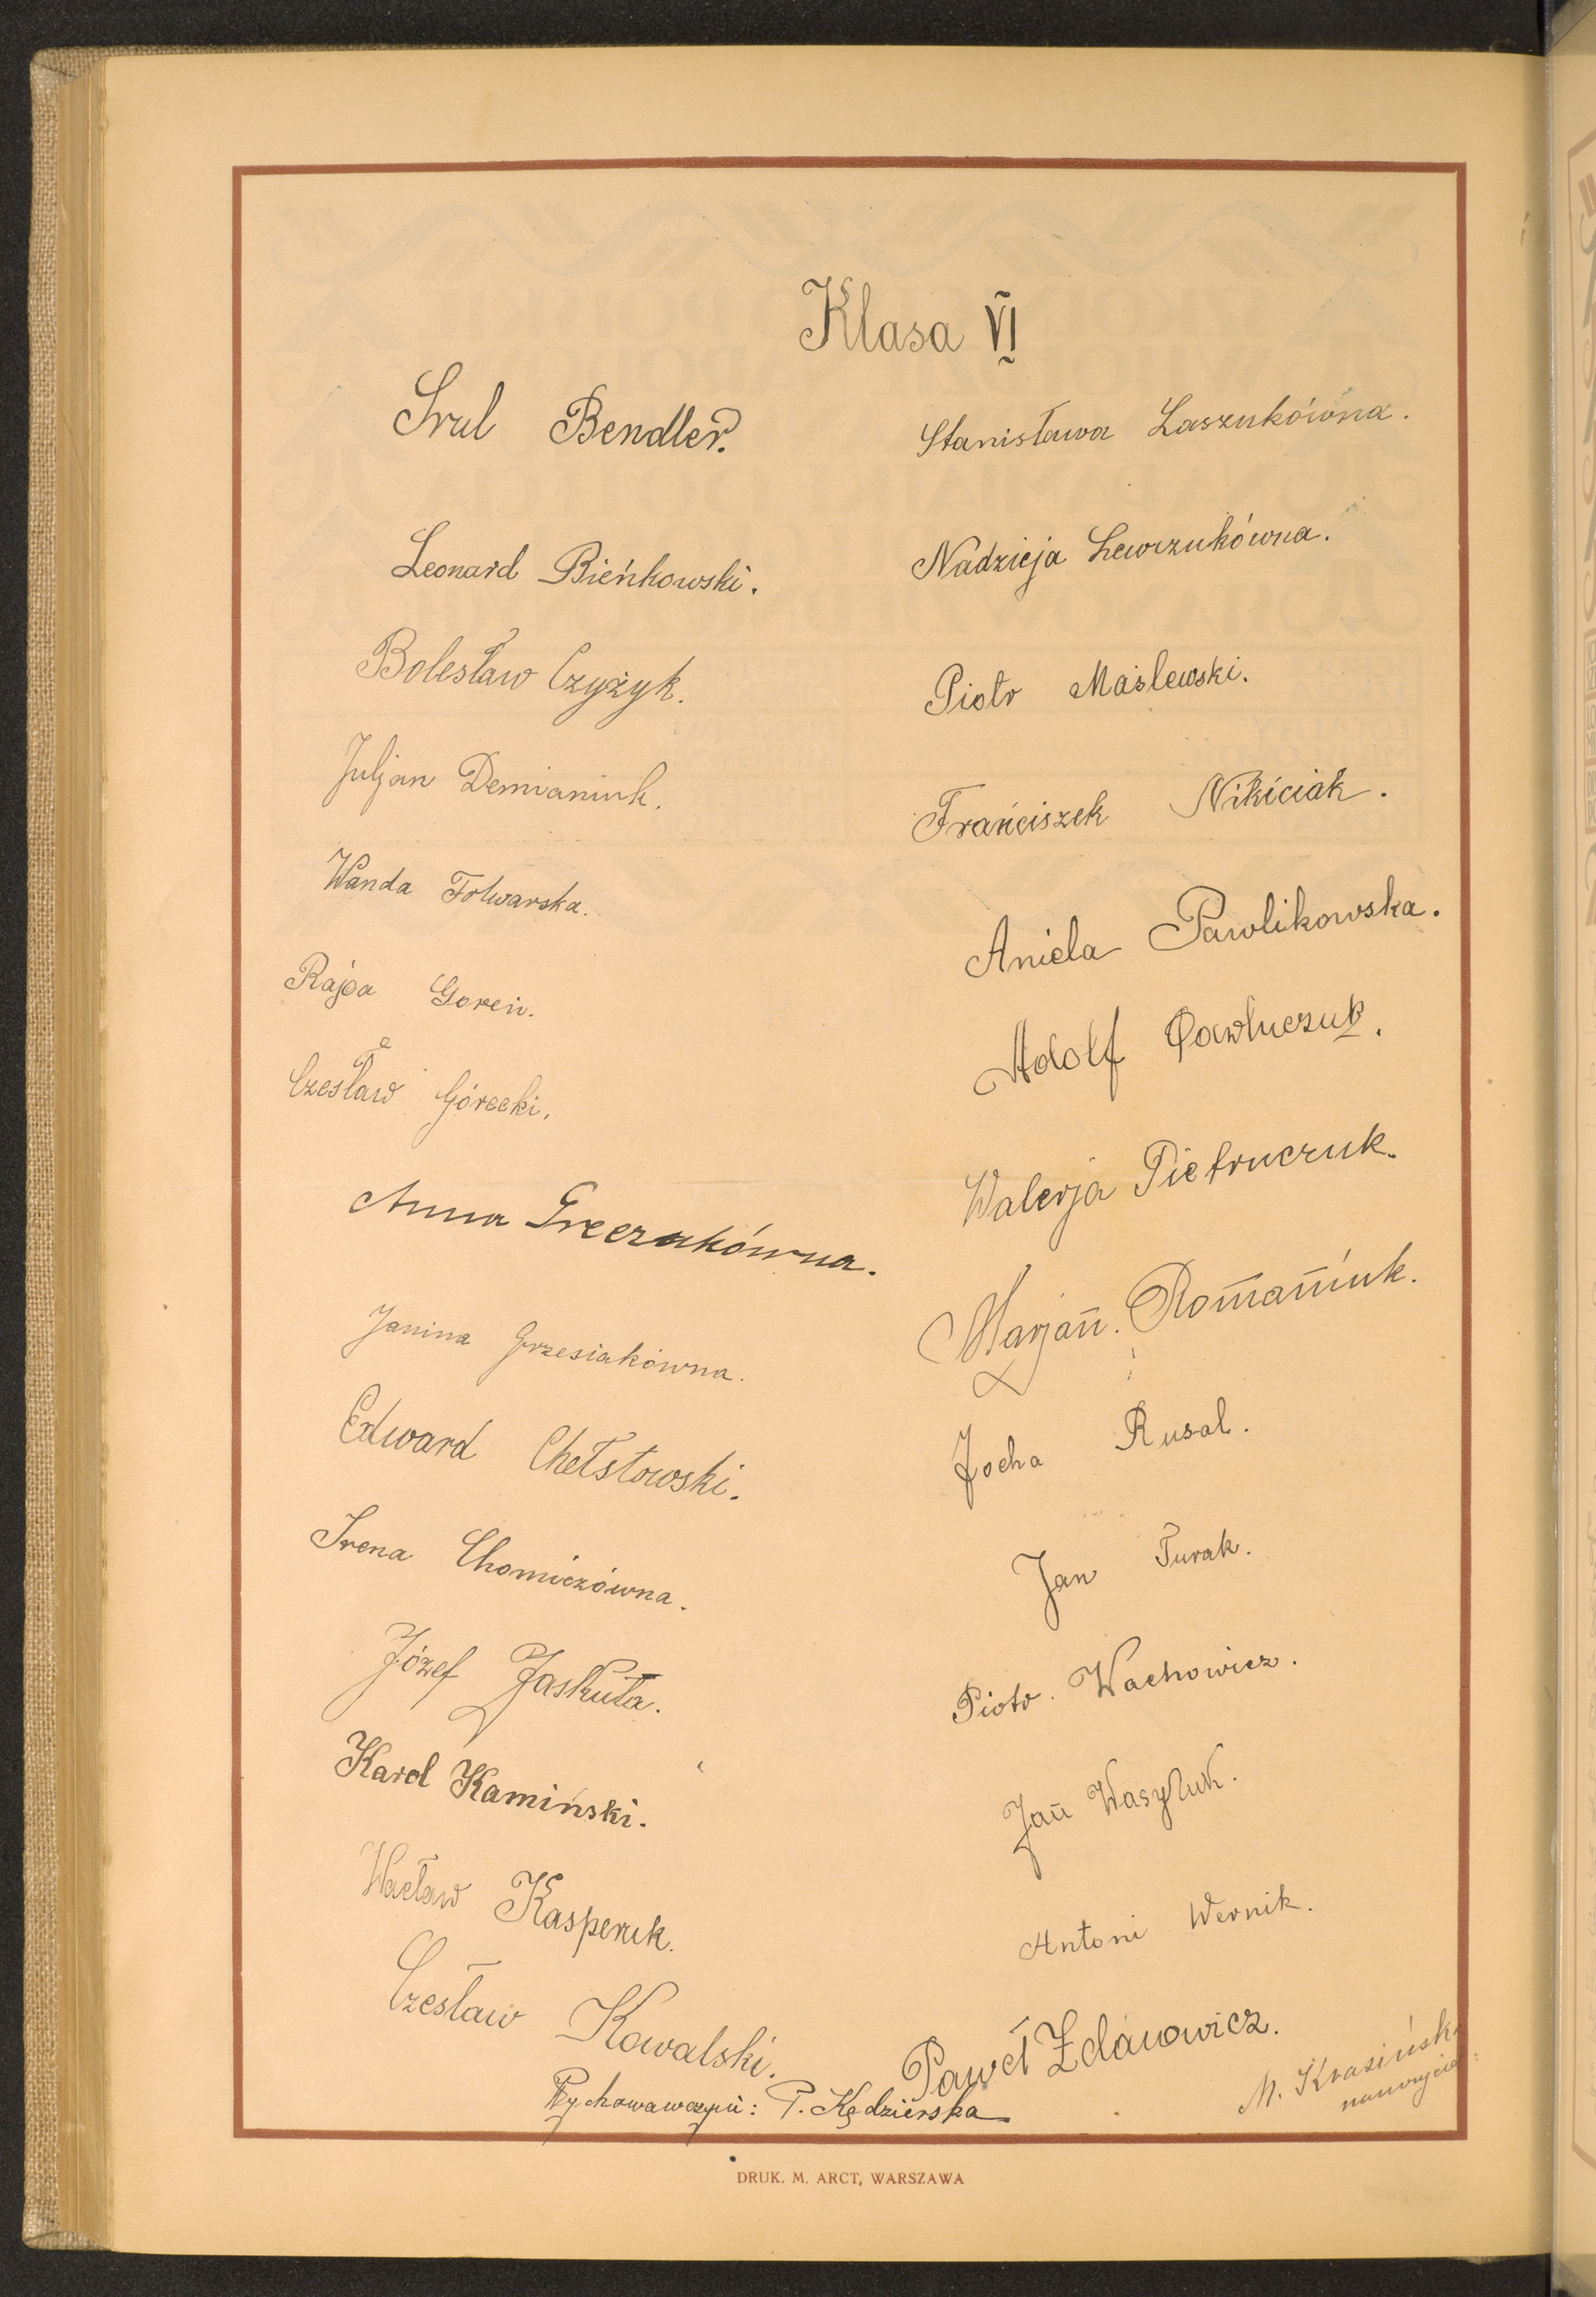 Klasa VI
Srul Bendler.
Leonard Bieńkowski.
Bolesław Czyżyk.
Juljan Demianiuk.
Wanda Folwarska.
Rajca Goren.
Czesław Górecki.
Anna Greczukówna.
Janina Grzesiakówna.
Edward Chełstowski.
Irena Chomiczówna.
Józef Jaskuła.
Karol Kamiński.
Wacław Kasperuk.
Czesław Kowalski.
Stanisława Laszukówna.
Nadzieja Lewczukówna.
Piotr Maślewski.
Franciszek Nikiciak.
Aniela Pawlikowska.
Adolf Pawluczuk.
Walerja Pietruczuk.
Marjan Romaniuk.
Jocha Rusal.
Jan Turak.
Piotr Wachowicz.
Jan Wasyluk.
Antoni Wernik.
Paweł Zdanowicz.
Wychowawczyni: P. Kędzierska
M. Krasiński
nauczyciel
DRUK. M. ARCT, WARSZAWA